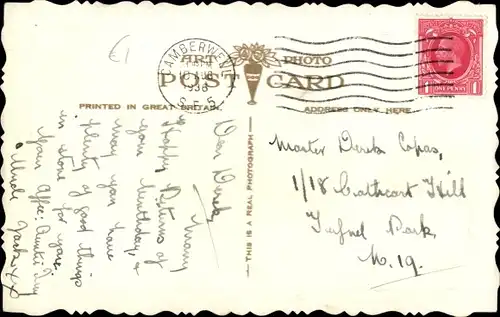 £1
CAMBERWELL
1936
S.E.5
ART PHOTO
POST CARD
PRINTED IN GREAT BRITAIN.
ADDRESS ONLY HERE
THIS IS A REAL PHOTOGRAPH
ONE PENNY
Dear Derek,
Many
Happy Returns of
your birthday, &
may you have
plenty of good things
in store for you.
Your Affec: Auntie
& Uncle Jack xx
Master Derek Copas,
1/18 Cathcart Hill
Tufnel Park
N.19.